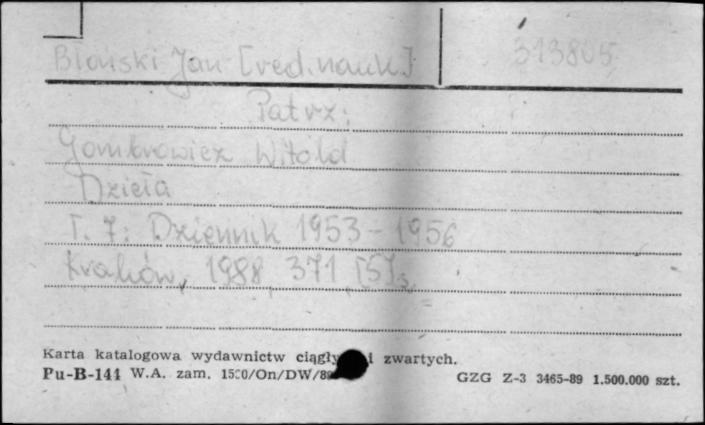 Błoński Jan [red. nauk.] 313805
Patrz:
Gombrowicz Witold
Dzieła
T. 7: Dziennik 1953-1956
Kraków, 1988, 371 [5] s.
Karta katalogowa wydawnictw ciągły i zwartych.
Pu-B-144 W.A. zam. GZG Z-3 3465-89 1.500.000 szt.